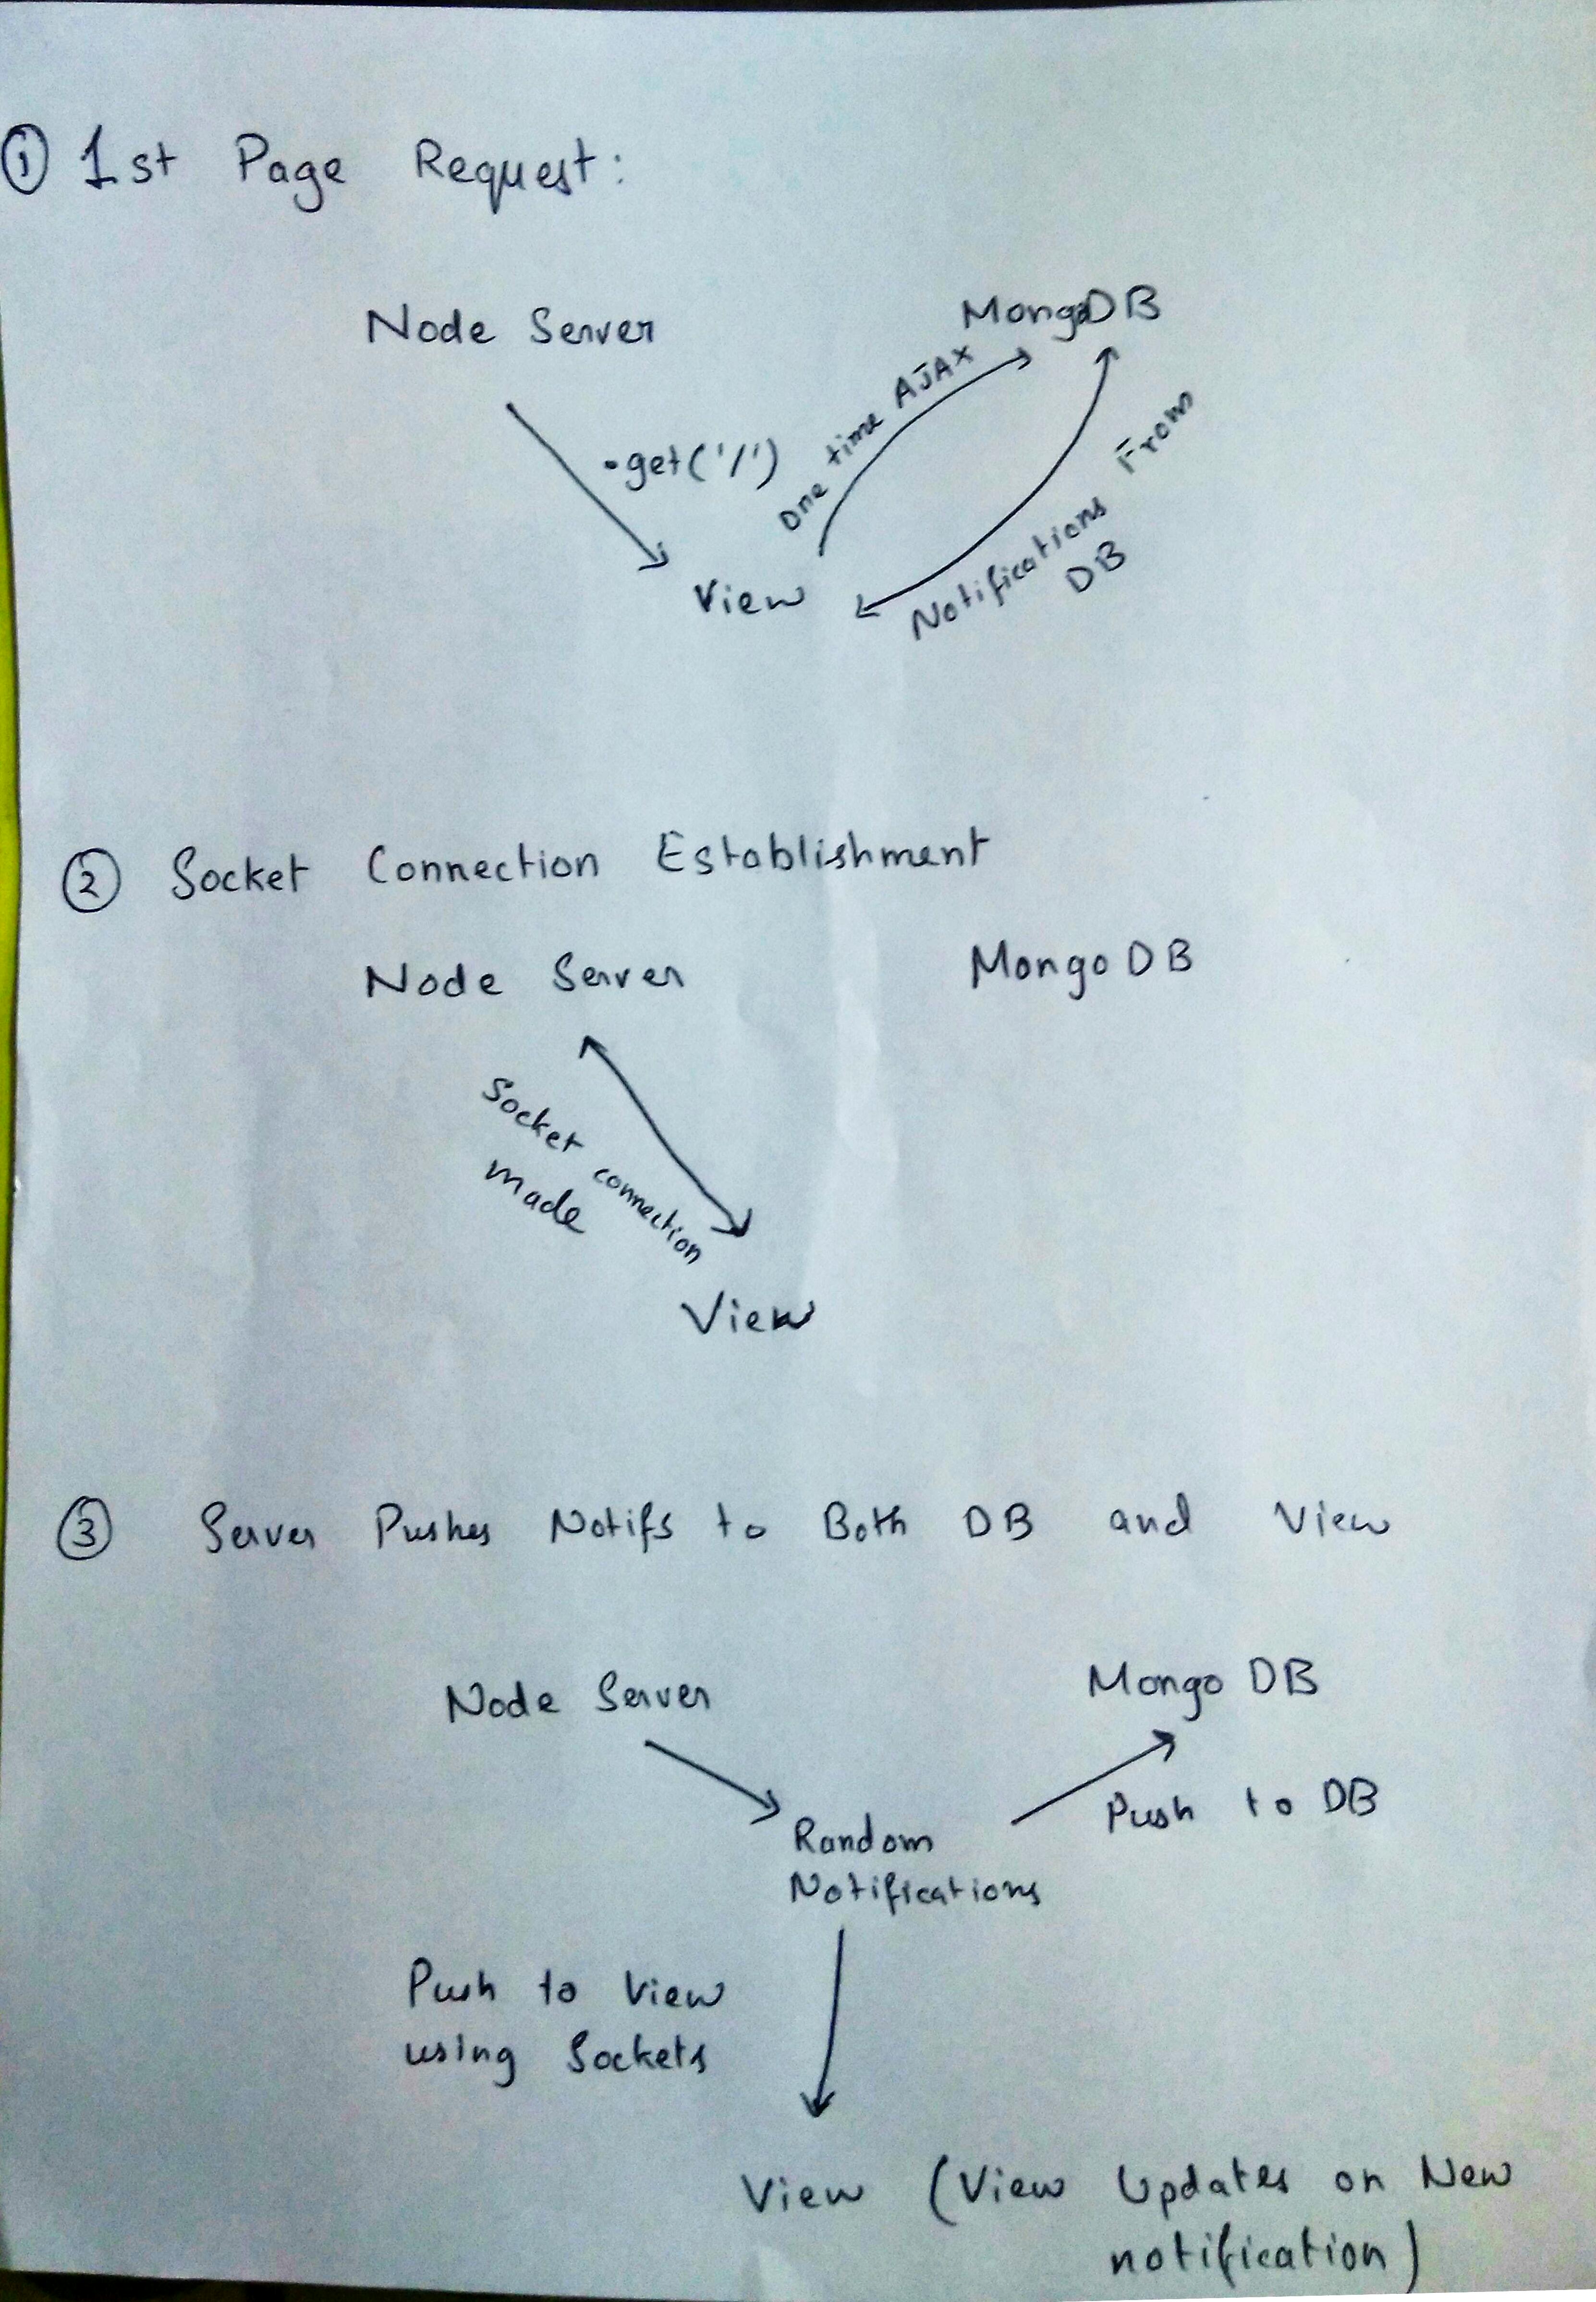 ① 1st Page Request:
Node Server
MongoDB
.get('/')
One time AJAX
Notifications From
DB
View
② Socket Connection Establishment
Node Server
MongoDB
Socket connection
made
View
③ Server Pushes Notifs to Both DB and View
Node Server
Mongo DB
Push to DB
Random
Notifications
Push to View
using Sockets
View (View Updates on New
notification)